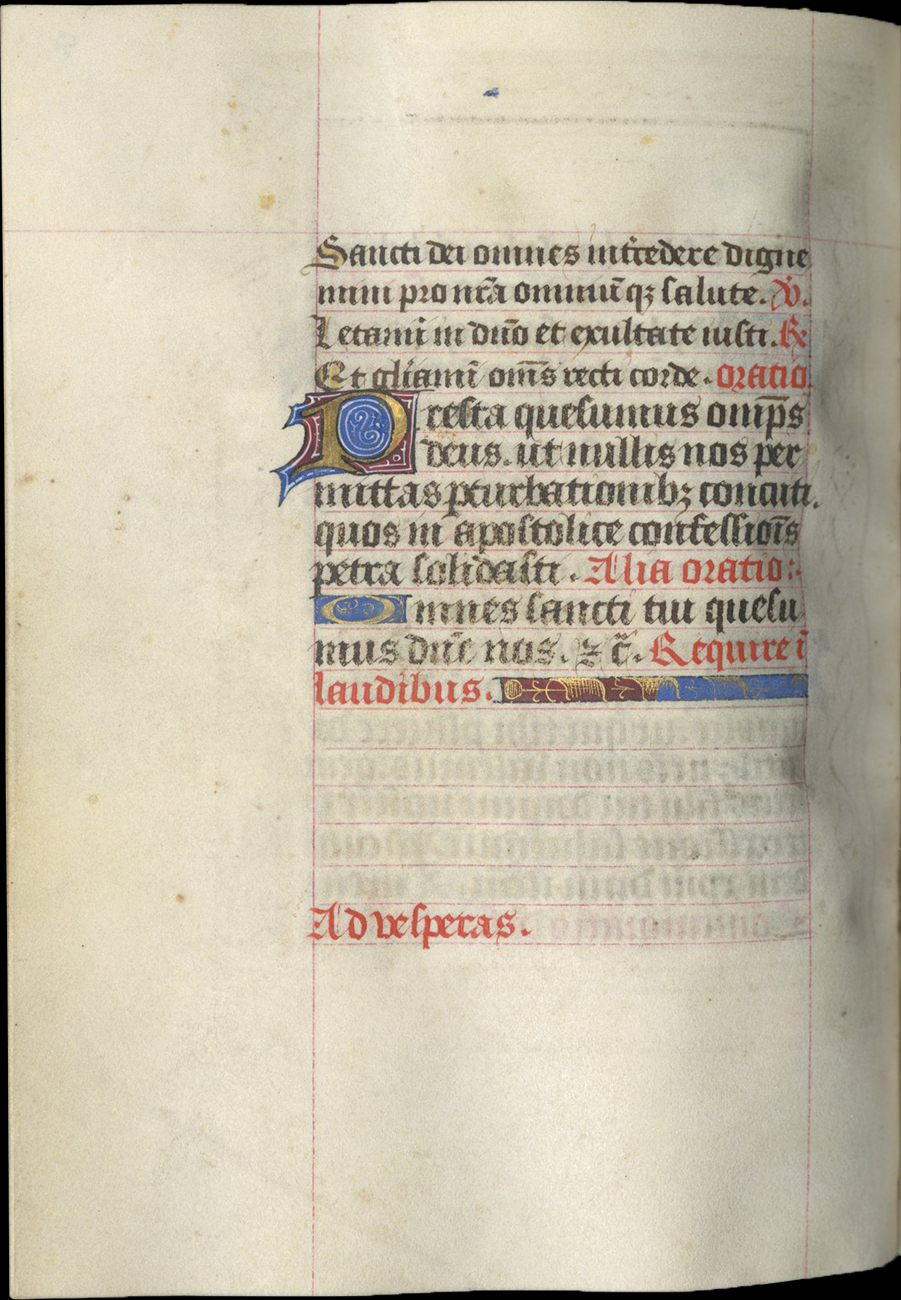 Sancti dei omnes int̃cedere digne
mini pro nr̃a omniũqꝫ salute. ℣.
Letamĩ in dño et exultate iusti. ℞
Et gl̃iamĩ om̃s recti corde. oratio.
Presta quesumus omi̅ps
deus. ut nullis nos per
mittas ꝑturbationibꝫ concuti.
quos in apostolice confessiõis
petra solidasti. Alia oratio:
Omnes sancti tui quesu
mus dñe nos. ⁊c̃. Require ĩ
laudibus.
Ad vesperas.